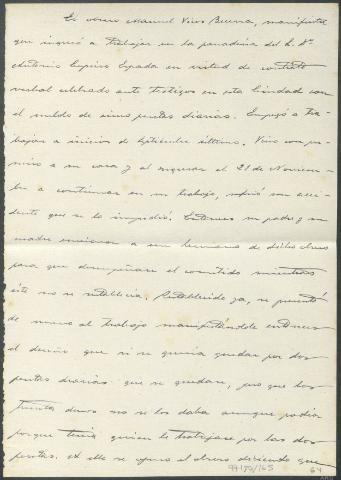 El obrero Manuel Vivo Becerra, manifiesta
que ingresó a trabajar en la panadería del S. Dn
Antonio Espada en virtud de contrato
verbal celebrado ante testigos en esta Ciudad con
el sueldo de cinco pesetas diarias. Empezó a tra-
bajar a inicios de septiembre último. Vino con per-
miso a su casa y al regresar el 21 de Noviem-
bre a continuar en su trabajo, sufrió un acci-
dente que se lo impidió. Entonces su padre y su
madre enviaron a un hermano de dicho obrero
para que desempeñara el cometido mientras
éste no se restablecía. Restablecido ya, se presentó
de nuevo al trabajo manifestándole entonces
el dueño que si se quería quedar por dos
pesetas diarias que se quedara, pero que los
treinta duros no se los daba aunque podía
porque tenía quien le trabajase por las dos
pesetas. A ello se opuso el obrero diciendo que
64